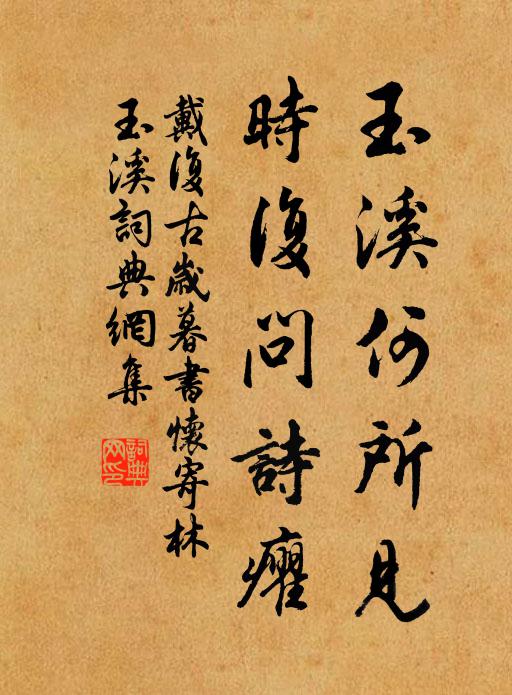 玉溪何所見
時復問詩癯
戴復古歲暮書懷寄林
玉溪詞典網集
詞典网印